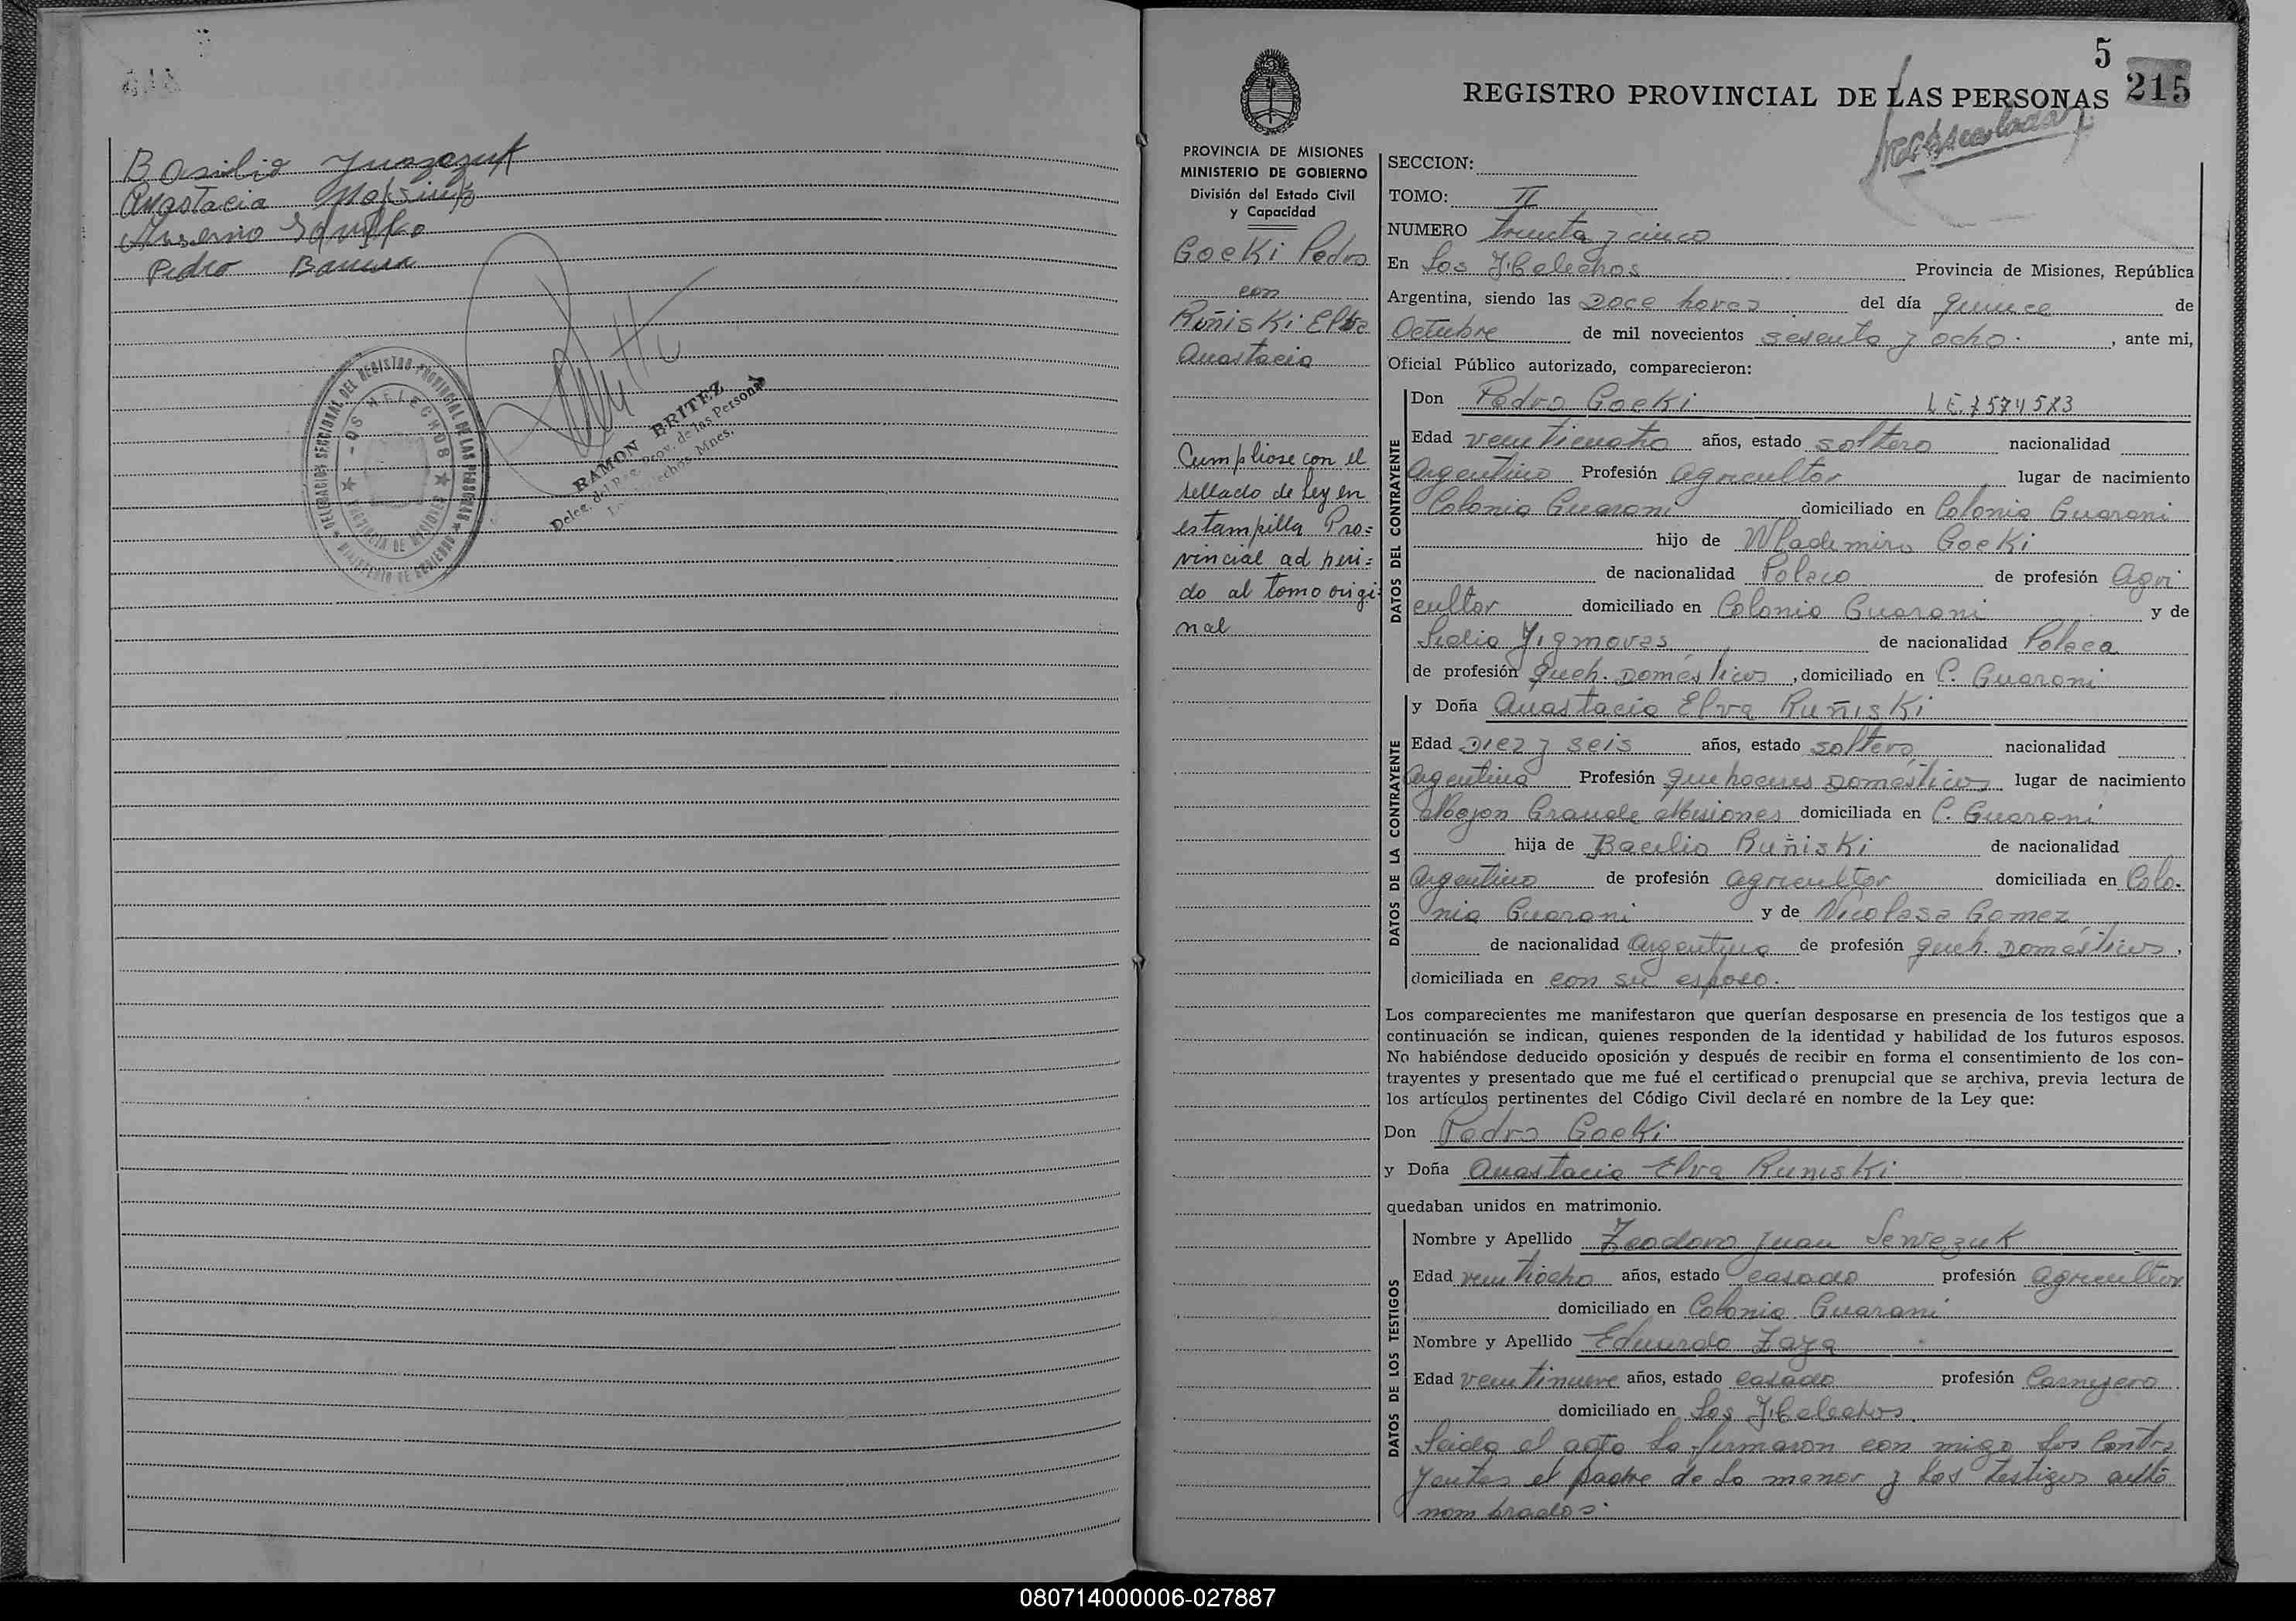 Basilio
Anastacia
Anselmo
Pedro
DELEGACION SECCIONAL DEL REGISTRO PROVINCIAL DE LAS PERSONAS
LOS HELECHOS
PROVINCIA DE MISIONES
MINISTERIO DE GOBIERNO
RAMON BRITEZ
Deleg. del Reg. Prov. de las Personas
Los Helechos. Mnes.
5
215
REGISTRO PROVINCIAL DE LAS PERSONAS
PROVINCIA DE MISIONES
MINISTERIO DE GOBIERNO
División del Estado Civil
y Capacidad
Goeki Pedro
con
Ruñiski Elva
Anastacia
Cumpliose con el
sellado de ley en
estampilla Pro=
vincial ad heri=
do al tomo origi=
nal
SECCION:
TOMO: II
NUMERO treinta y cinco
En Los Helechos Provincia de Misiones, República
Argentina, siendo las Doce horas del día quince de
Octubre de mil novecientos sesenta y ocho. , ante mi,
Oficial Público autorizado, comparecieron:
DATOS DEL CONTRAYENTE
Don Pedro Goeki L E. 7574583
Edad veinticuatro años, estado soltero nacionalidad
Argentino Profesión agricultor lugar de nacimiento
Colonia Guarani domiciliado en Colonia Guarani
hijo de Wladimiro Goeki
de nacionalidad Polaco de profesión Agri
cultor domiciliado en Colonia Guarani y de
de nacionalidad Polaca
de profesión queh. Domésticos , domiciliado en C. Guarani
DATOS DE LA CONTRAYENTE
y Doña Anastacia Elva Ruñiski
Edad Diez y seis años, estado soltera nacionalidad
Argentina Profesión quehaceres Domésticos lugar de nacimiento
Mojon Grande Misiones domiciliada en C. Guarani
hija de Bacilio Ruñiski de nacionalidad
Argentino de profesión agricultor domiciliada en Colo-
nia Guarani y de Nicolasa Gomez
de nacionalidad Argentina de profesión queh. Domésticos,
domiciliada en con su esposo.
Los comparecientes me manifestaron que querían desposarse en presencia de los testigos que a
continuación se indican, quienes responden de la identidad y habilidad de los futuros esposos.
No habiéndose deducido oposición y después de recibir en forma el consentimiento de los con-
trayentes y presentado que me fué el certificado prenupcial que se archiva, previa lectura de
los artículos pertinentes del Código Civil declaré en nombre de la Ley que:
Don Pedro Goeki
y Doña Anastacia Elva Runiski
quedaban unidos en matrimonio.
DATOS DE LOS TESTIGOS
Nombre y Apellido Teodoro Juan Sewezuk
Edad veintiocho años, estado casado profesión agricultor
domiciliado en Colonia Guarani
Nombre y Apellido Eduardo Zaya
Edad veintinueve años, estado casado profesión Carnicero
domiciliado en Los Helechos.
Leida el acta la firmaron con migo los Contra
yentes el padre de la menor y los testigos ante
nombrados.
080714000006-027887